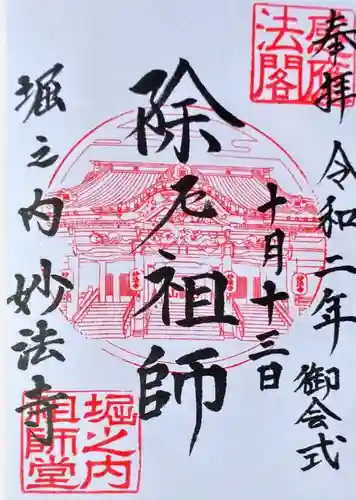 奉拝
令和二年
御会式
十月十三日
除厄祖師
堀之内
妙法寺
堀之内
祖師堂
法閣